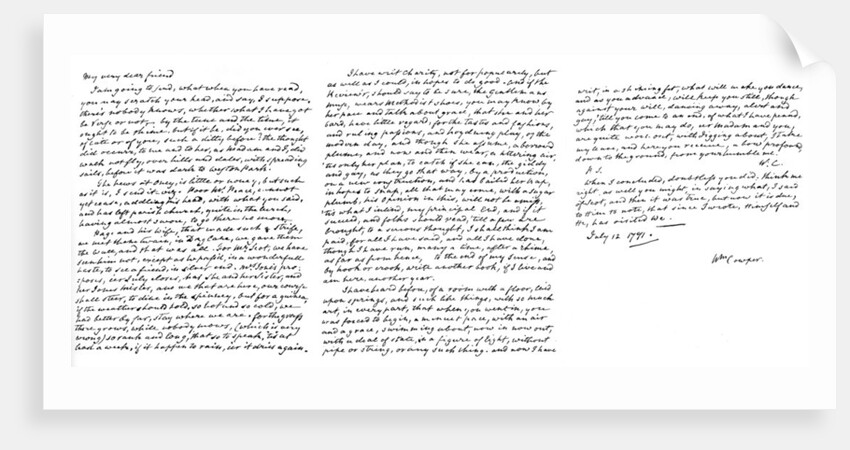 My very dear friend
I am going to send, what when you have read,
you may scratch your head, and say, I suppose,
there's nobody knows, whether what I have got
be Verse or not. by the tune and the time, it
ought to be rhime. but if it be, did you ever see,
of late or of yore, such a ditty before? The thought
did occur, to me and to her, as Madam and I, did
walk not fly, over hills and dales, with spreading
sails, before it was dark to Weston Park.
The News at Oney, is little or noney, but such
as it is, I send it. viz. Poor Mr. Peace, cannot
yet cease, addling his head, with what you said,
and has left parish church, quite in the lurch,
having almost swore, to go there no more.
Page and his wife, that made such a strife,
we met them twain, in Dag Lane, we gave them
the wall, and that was all. for Mr. Scot, we have
seen him not, except as he pass'd, in a wonderfull
haste, to see a friend, in silver end. Mrs. Jones pro:
poses, e'er July closes, that she and her Sister, and
her Jones Mister, and we that are here, our course
shall steer, to dine in the spinney. but for a guinea,
if the weather should hold, so hot and so cold, we
had better by far, stay where we are. for the grass
there grows, while nobody mows, (which is very
wrong) so rank and long, that so to speak, 'tis at
least a week, if it happen to rain, e'er it dries again.
I have writ Charity, not for popularity, but
as well as I could, in hopes to do good. and if the
Reviewr, should say to be sure, the Gentleman's
Muse, wears Methodist shoes, you may know by
her pace and talk about grace, that she and her
bard, have little regard, for the tastes and fashions,
and ruling passions, and hoydening play, of the
modern day, and though she assume, a borrow'd
plume, and now and then wear, a tittering air,
'tis only her plan, to catch if she can, the giddy
and gay, as they go that way, by a production,
on a new construction, and has baited her trap,
in hopes to snap, all that may come, with a sugar
plumb, his opinion in this, will not be amiss,
'tis what I intend, my principal End, and if it
succeed, and folks should read, 'till a few are
brought, to a serious thought, I shall think I am
paid, for all I have said, and all I have done,
though I have run, many a time, after a rhime,
as far as from hence, to the end of my sense, and
by hook or crook, write another book, if I live and
am here another year.
I have heard before, of a room with a floor, laid
upon springs, and such like things, with so much
art, in every part, that when you went in, you
was forced to begin, a minuet pace, with an air
and a grace, swimming about, now in now out,
with a deal of state, in a figure of eight, without
pipe or string, or any such thing. and now I have
writ, in a rhiming fit, what will make you dance,
and as you advance, will keep you still, though
against your will, dancing away, alert and
gay, 'till you come to an end, of what I have penn'd,
which that you may do, e'er Madam and you,
are quite worn out, with jigging about, I take
my leave, and here you receive, a bow profound,
down to the ground, from your humble me.
W. C.
P.S.
When I concluded, doubtless you did, think me
right, as well you might, in saying what, I said
of Scot, and then it was true, but now it is due,
to him to note, that since I wrote, Himself and
He, has visited We.
July 12 1781.
Wm Cowper.